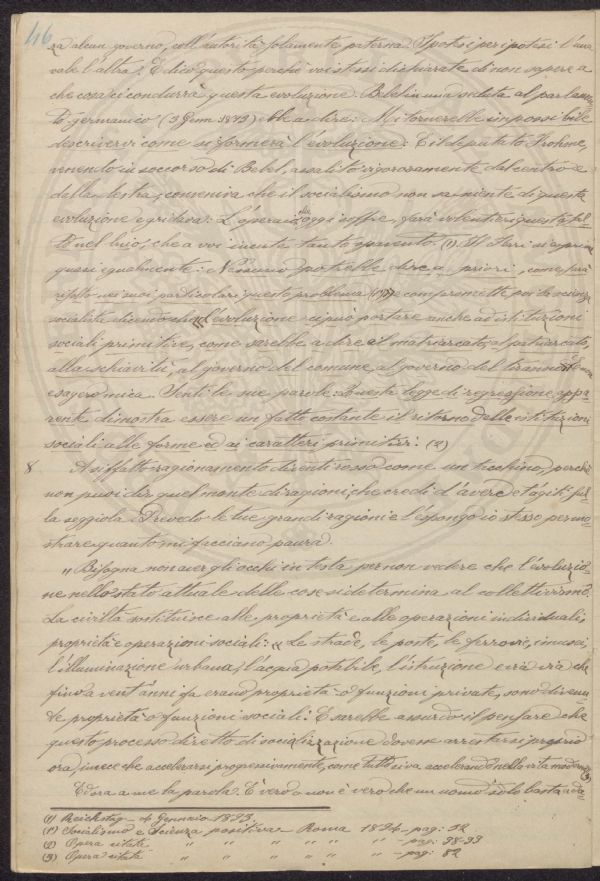 46
za alcun governo, coll'autorità solamente paterna. Ipotesi per ipotesi: l'una
vale l'altra. E dico questo perché voi stessi dichiarate di non sapere a
che cosa ci condurrà questa evoluzione. Bebel in una seduta al parlamen-
to germanico (3 Genn: 1893) ebbe a dire: Mi tornerebbe impossibile
descrivervi come si formerà l'evoluzione: E il deputato Frohme,
venendo in soccorso di Bebel, assalito vigorosamente dal centro e
dalla destra, conveniva che il socialismo non sa niente di questa
evoluzione e gridava: L'operaio che oggi soffre, farà volentieri questo sal-
to nel buio, che a voi incute tanto spavento. (1). Il Ferri si esprime
quasi egualmente: Nessuno potrebbe dire a priori, come sarà
risolto nei suoi particolari questo problema (1º) e compromette poi la scienza
socialista dicendo che "l'evoluzione ci può portare anche ad istituzioni
sociali primitive, come sarebbe a dire al matriarcato, al patriarcato,
alla schiavitù, al governo del comune, al governo del tiranno. E non
esagero mica. Senti le sue parole: Questa legge di regressione appa-
rente dimostra essere un fatto costante il ritorno delle istituzioni
sociali alle forme ed ai caratteri primitivi: (2)
8 A siffatto ragionamento diventi rosso come un tacchino, perché
non puoi dir quel monte di ragioni, che credi d'avere e t'agiti sul-
la seggiola. Prevedo le tue grandi ragioni e l'espongo io stesso per mo-
strare quanto mi facciano paura.
" Bisogna non aver gli occhi in testa per non vedere che l'evoluzio-
ne nello stato attuale delle cose si determina al collettivismo.
La civiltà sostituisce alle proprietà e alle operazioni individuali,
proprietà e operazioni sociali: "Le strade, le poste, le ferrovie, i musei,
l'illuminazione urbana, l'acqua potabile, l'istruzione ecc. ecc. che
fino a vent'anni fa erano proprietà o funzioni private, sono divenu-
te proprietà o funzioni sociali. E sarebbe assurdo il pensare che
questo processo diretto di socializzazione dovesse arrestarsi proprio
ora, invece che accelerarsi progressivamente, come tutto si va accelerando nella vita moderna (3)
Ed ora a me la parola. È vero o non è vero che un uomo solo basta a da-
(1) Reichstag - 4 Gennaio 1893.
(1º) Socialismo e Scienza positiva - Roma 1894 - pag: 12
(2) Opera citata " " " " " - pag: 98-99
(3) Opera citata " " " " " - pag: 82